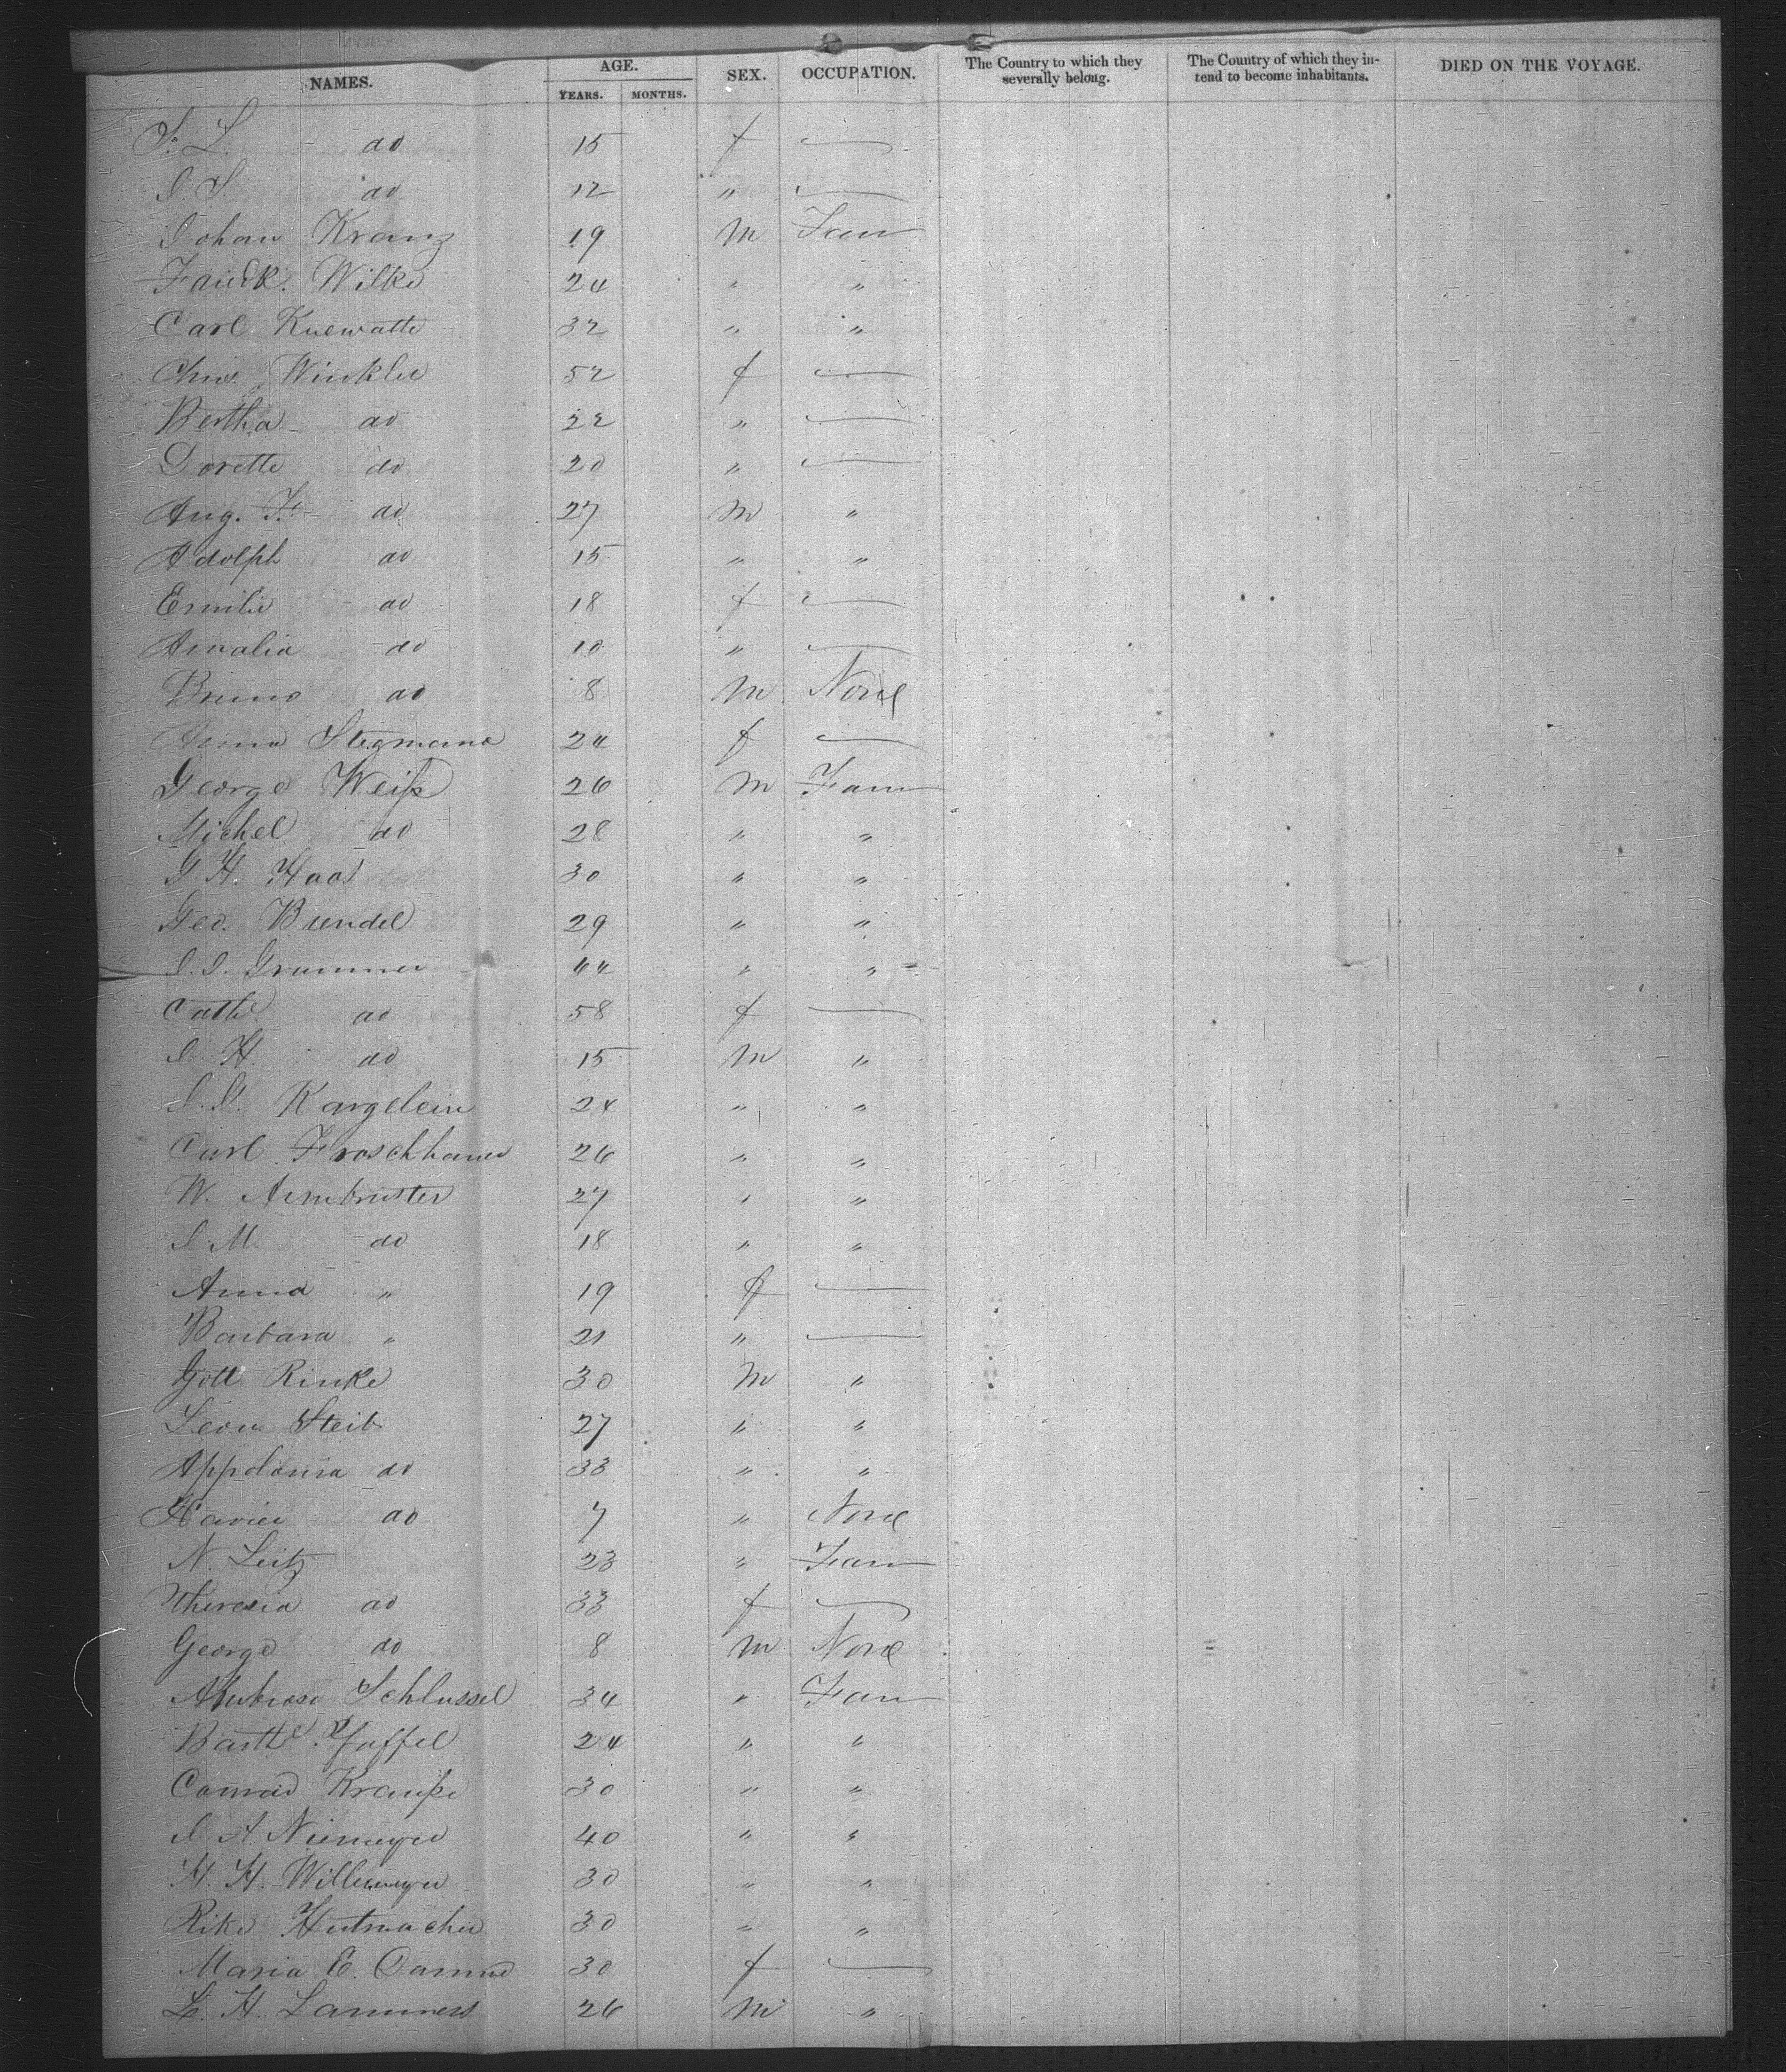 NAMES. AGE. YEARS. MONTHS. SEX. OCCUPATION. The Country to which they severally belong. The Country of which they intend to become inhabitants. DIED ON THE VOYAGE.
F. L. do 15 f —
I. S. do 12 " —
Johan Kranz 19 m Farm
Friedk. Wilke 24 " "
Carl Kuewatte 32 " "
Chne. Winkler 52 f —
Bertha do 22 " —
Dorette do 20 " —
Aug. F. do 27 m "
Adolph do 15 " "
Emilie do 18 f —
Amalia do 10 " —
Bruno do 8 m None
Stegmann 24 f —
George Weiß 26 m Farm
Michel do 28 " "
G. H. Haas 30 " "
Geo. Bundel 29 " "
I. I. Grammer 44 " "
Cath. do 58 f —
I. H. do 15 m "
I. G. Kargelein 24 " "
Carl Froschhauer 26 " "
W. Armbruster 27 " "
I. M. do 18 " "
Anna " 19 f —
Barbara " 21 " —
Gott. Rinke 30 m "
Leon Steib 27 " "
Appolonia do 33 " "
Xavier do 7 " None
N. Leitz 23 " Farm
Theresia do 33 f —
George do 8 m None
Ambrose Schlussel 34 " Farm
Barth. Pfaffel 24 " "
Conrad Krauße 30 " "
I. A. Niemeyer 40 " "
H. H. Willmeyer 30 " "
Rike Hutmacher 30 " "
Maria E. 30 f —
L. H. Lammers 26 m "